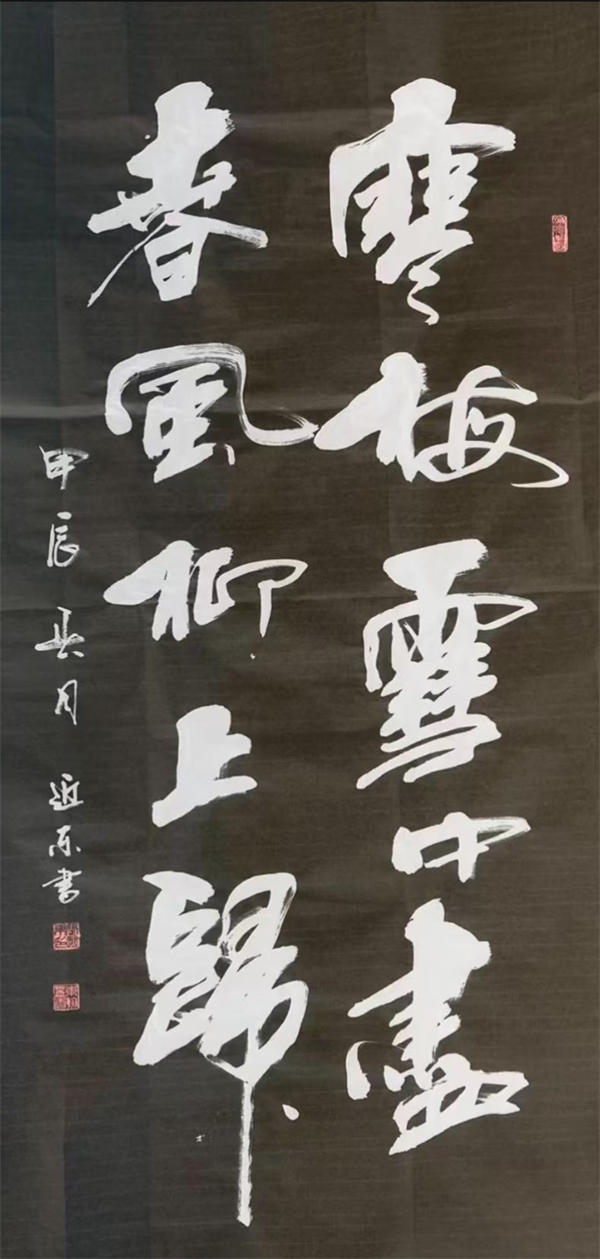 寒梅雪中盡
春風柳上歸
甲辰 月 近东書